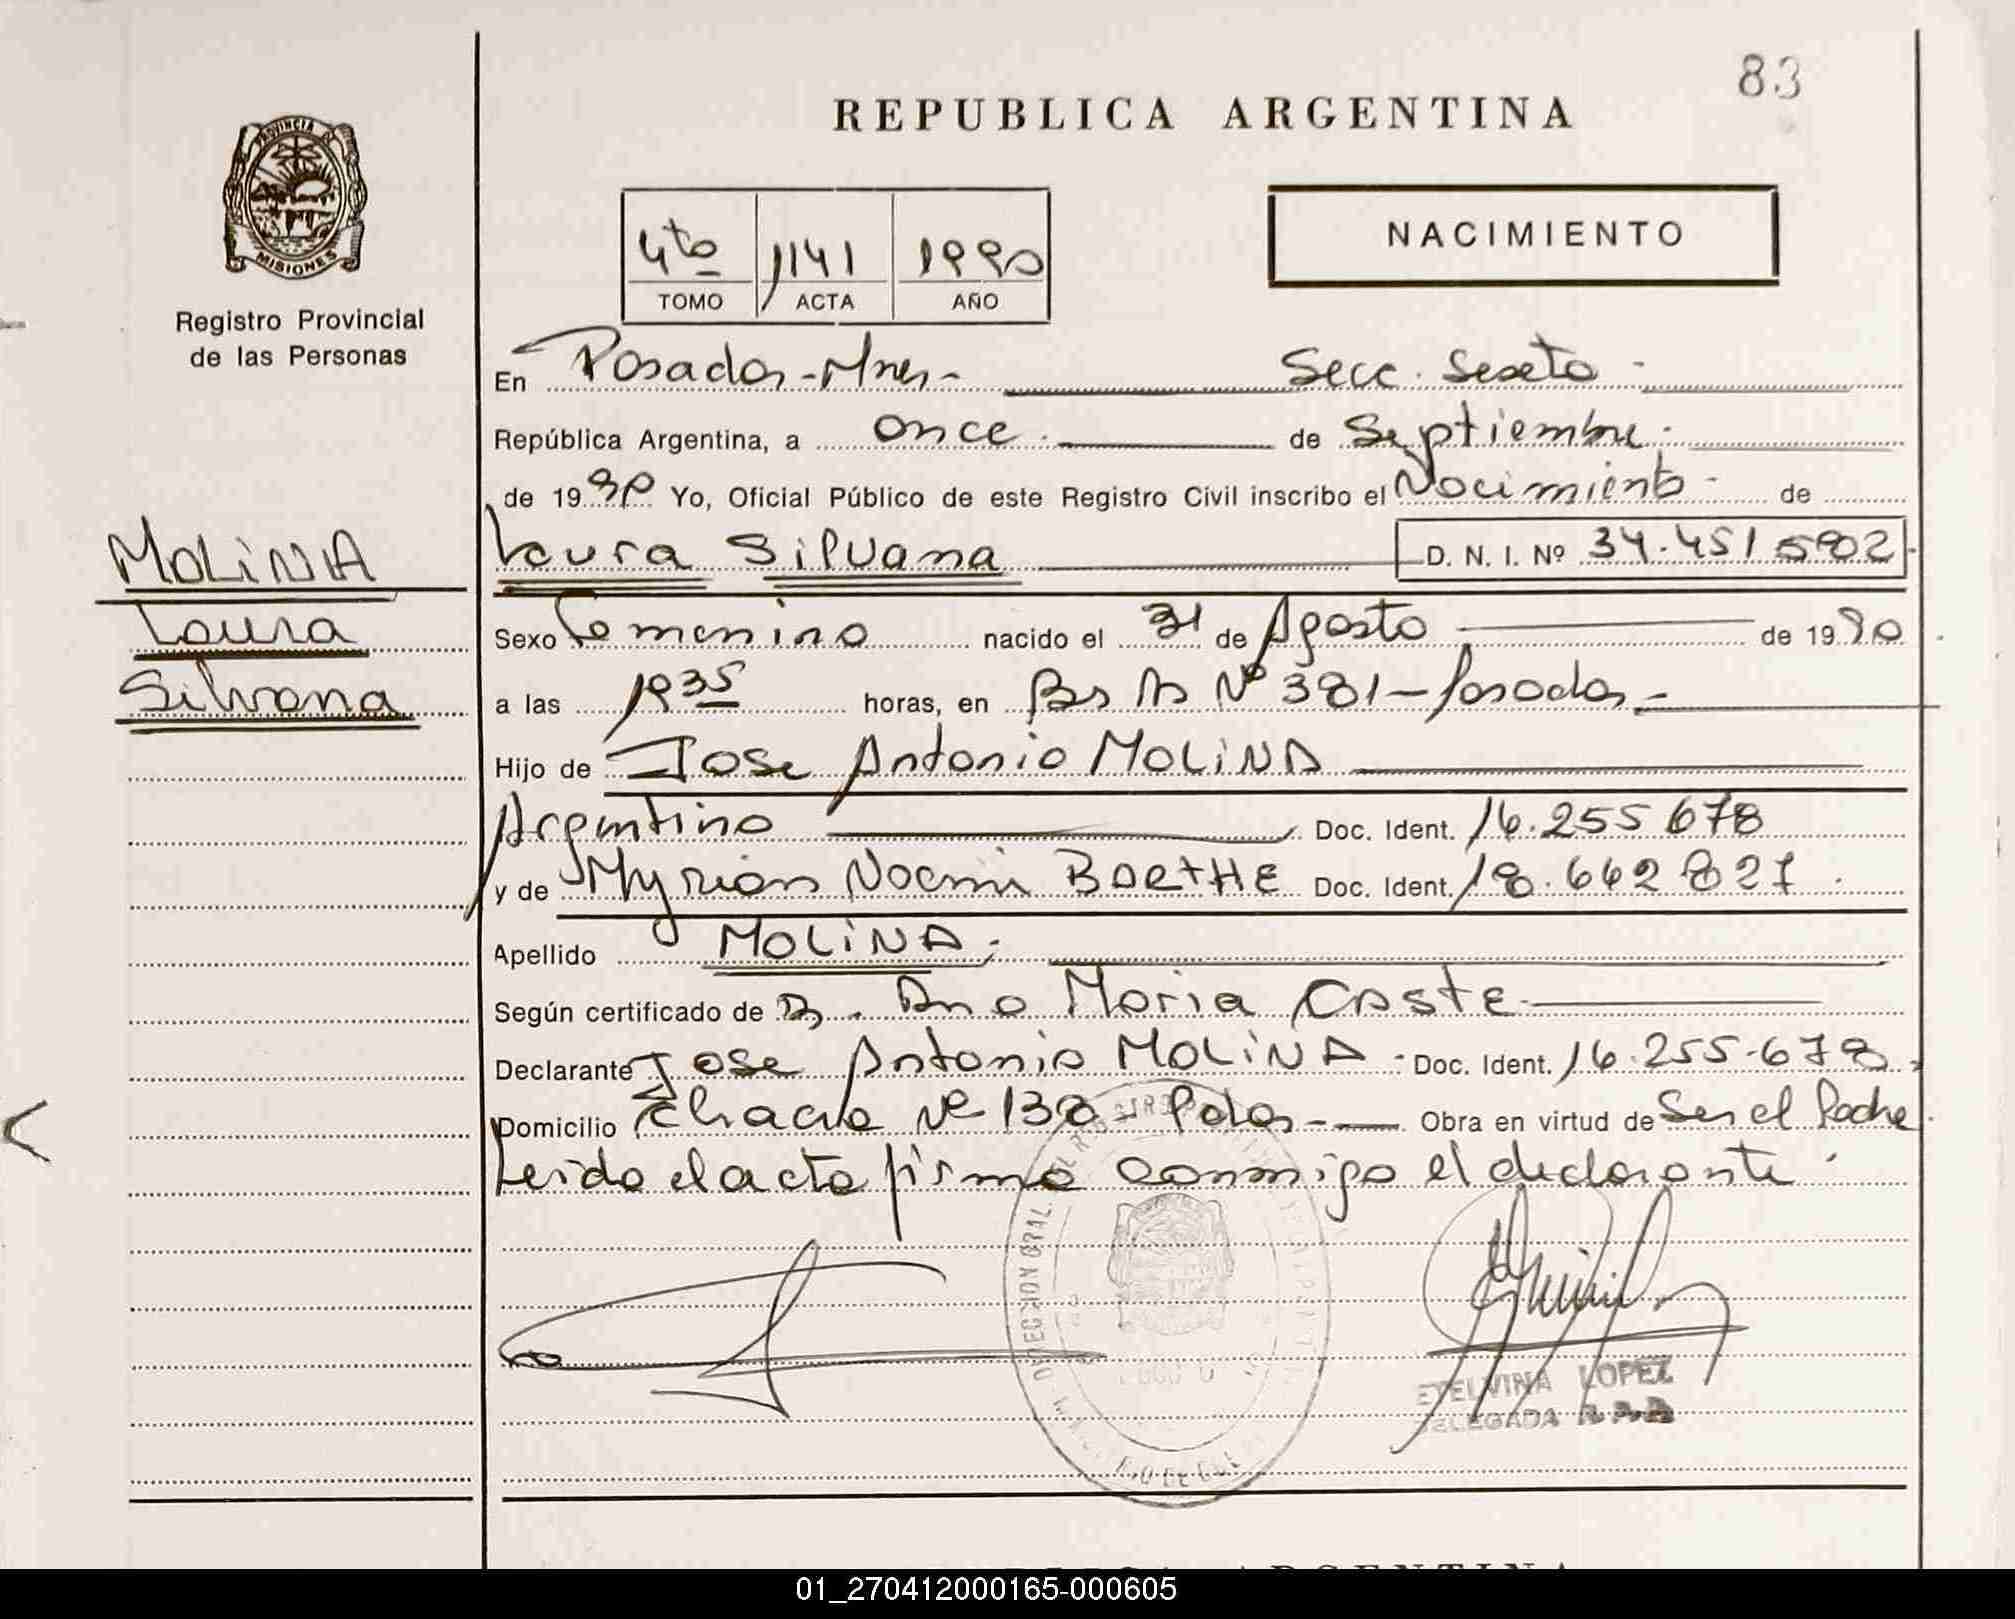 83
REPUBLICA ARGENTINA
PROVINCIA DE
MISIONES
Registro Provincial
de las Personas
NACIMIENTO
4to 1141 1990
TOMO ACTA AÑO
En Posadas-Mnes- Secc. Sexta-
República Argentina, a once. de Septiembre.
de 1990 Yo, Oficial Público de este Registro Civil inscribo el Nacimiento - de
MOLINA
Laura
Silvana
Laura Silvana D. N. I. Nº 34.451.502
Sexo Femenino nacido el 31 de Agosto de 1990
a las 1935 horas, en Bs As Nº 381-Posadas-
Hijo de Jose Antonio MOLINA
Argentino Doc. Ident. 16.255.678
y de Myrian Noemi BARTHE Doc. Ident. 18.642.827.
Apellido MOLINA.
Según certificado de Ana Maria CASTE
Declarante Jose Antonio MOLINA - Doc. Ident. 16.255.678.
Domicilio Chacra Nº 138 Pdas- Obra en virtud de Ser el Padre
Leido el acta firma conmigo el declarante.
ETELVINA LOPEZ
DELEGADA
ARGENTINA
01_270412000165-000605